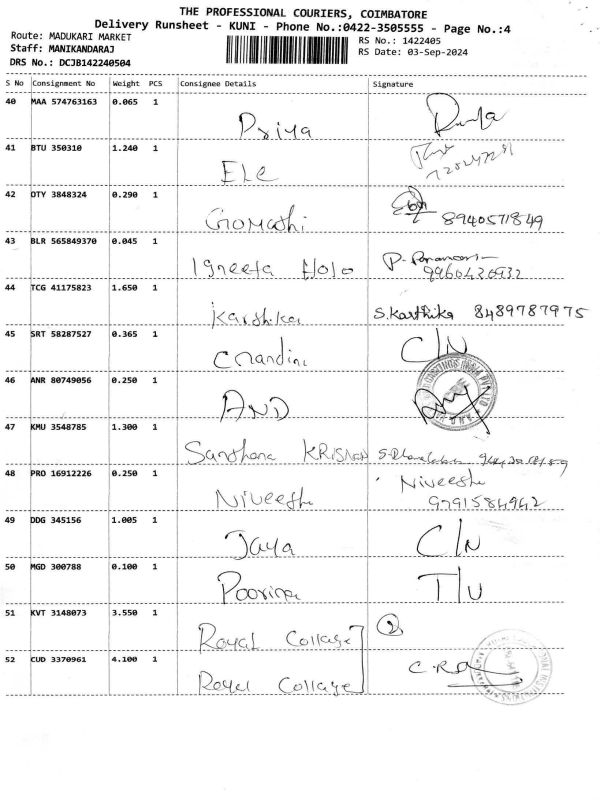 THE PROFESSIONAL COURIERS, COIMBATORE
Delivery Runsheet - KUNI - Phone No.:0422-3505555 - Page No.:4
Route: MADUKARI MARKET
RS No.: 1422405
Staff: MANIKANDARAJ
RS Date: 03-Sep-2024
DRS No.: DCJB142240504
S No Consignment No Weight PCS Consignee Details Signature
40 MAA 574763163 0.065 1 Priya
41 BTU 350310 1.240 1 ELE
42 OTY 3848324 0.290 1 Gomathi 8940571849
43 BLR 565849370 0.045 1
44 TCG 41175823 1.650 1 Karthika S.Karthika 8489787975
45 SRT 58287527 0.365 1 Chandini C/N
46 ANR 80749056 0.250 1 AND
47 KMU 3548785 1.300 1 Santhana
48 PRO 16912226 0.250 1 Niveetha Niveetha
9791584942
49 DDG 345156 1.005 1 Jaya C/N
50 MGD 300788 0.100 1 T/U
51 KVT 3148073 3.550 1 Royal Collage 2
52 CUD 3370961 4.100 1 Royal Collage